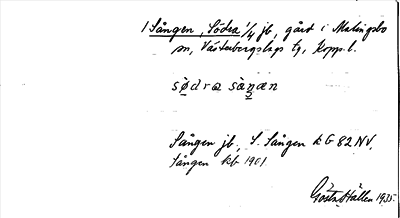 1 Sången, Södra 1/4 jb, gård i Malingsbo
sn, Västerbergslags tg, Kopp. l.
sødra sàŋæn
Sången jb, S. Sången kG 82 NV,
Sången kb 1901
Gösta Hallen 1935.